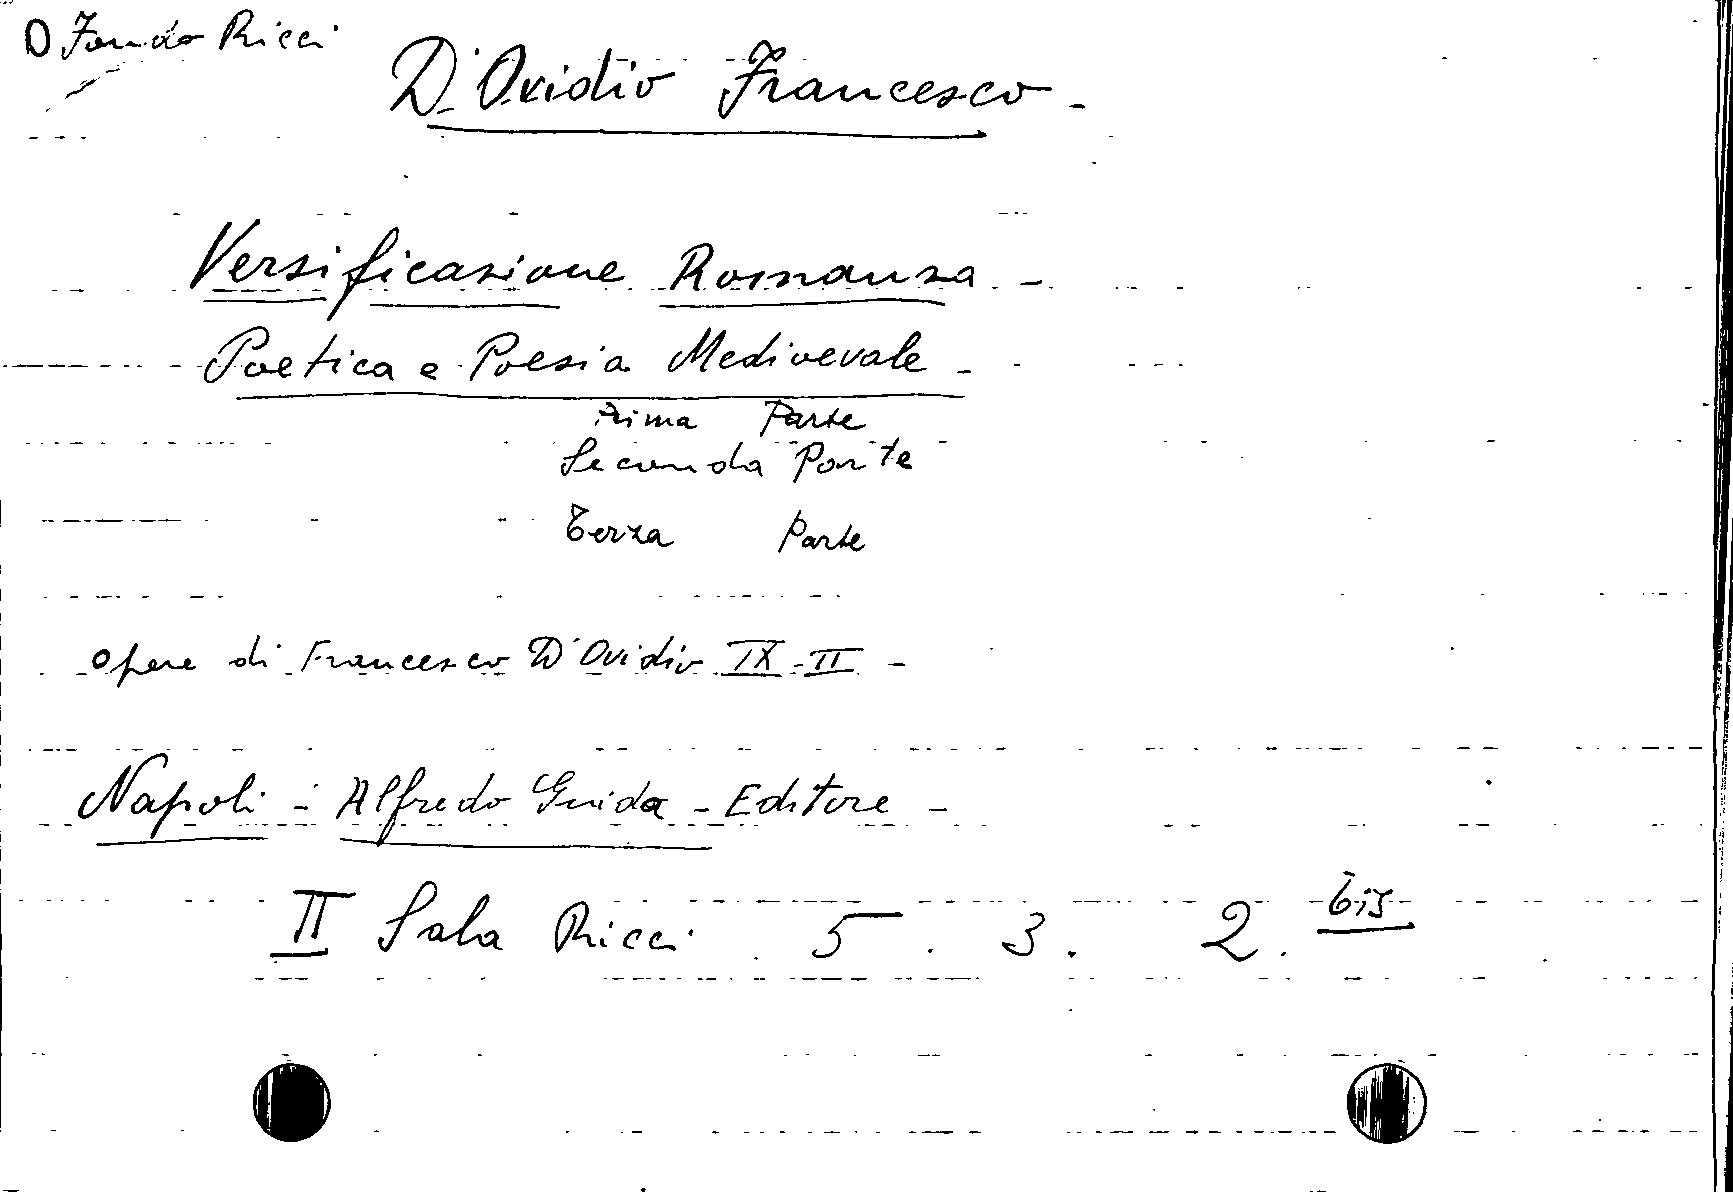 D Fondo Ricci
D'Ovidio Francesco -
Versificazione Romanza -
Poetica e Poesia Medioevale -
Prima Parte
Seconda Parte
Terza Parte
Opere di Francesco D'Ovidio IX-II -
Napoli - Alfredo Guida - Editore -
II Sala Ricci 5 . 3 . 2 . bis